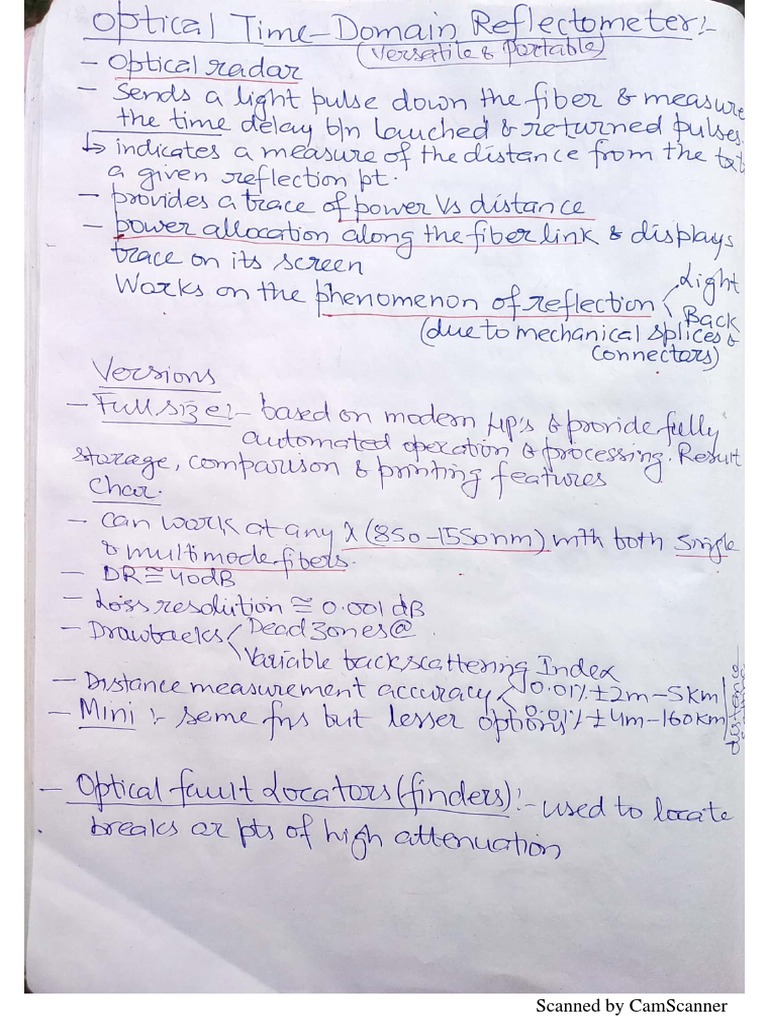 Optical Time-Domain Reflectometer:-
(Versatile & Portable)
- Optical radar
- Sends a light pulse down the fiber & measure
the time delay b/n lauched & returned pulses.
↳ indicates a measure of the distance from the txt
a given reflection pt.
- provides a trace of power Vs distance
- power allocation along the fiber link & displays
trace on its screen
Works on the phenomenon of reflection
Light
Back
(due to mechanical splices &
connectors)
Versions
- Full size:- based on modern μp's & provide fully
automated operation & processing. Result
storage, comparison & printing features
Char.
- can work at any λ (850-1550nm) with both single
& multimode fibers.
- DR ≅ 40dB
- Loss resolution ≅ 0.001 dB
- Drawbacks Dead Zones@
Variable backscattering Index
- Distance measurement accuracy 0.01% ± 2m - 5Km
- Mini :- seme fns but lesser options 0.01% ± 4m - 160Km
distance
- Optical fault Locators (finders):- used to locate
breaks or pts of high attenuation
Scanned by CamScanner